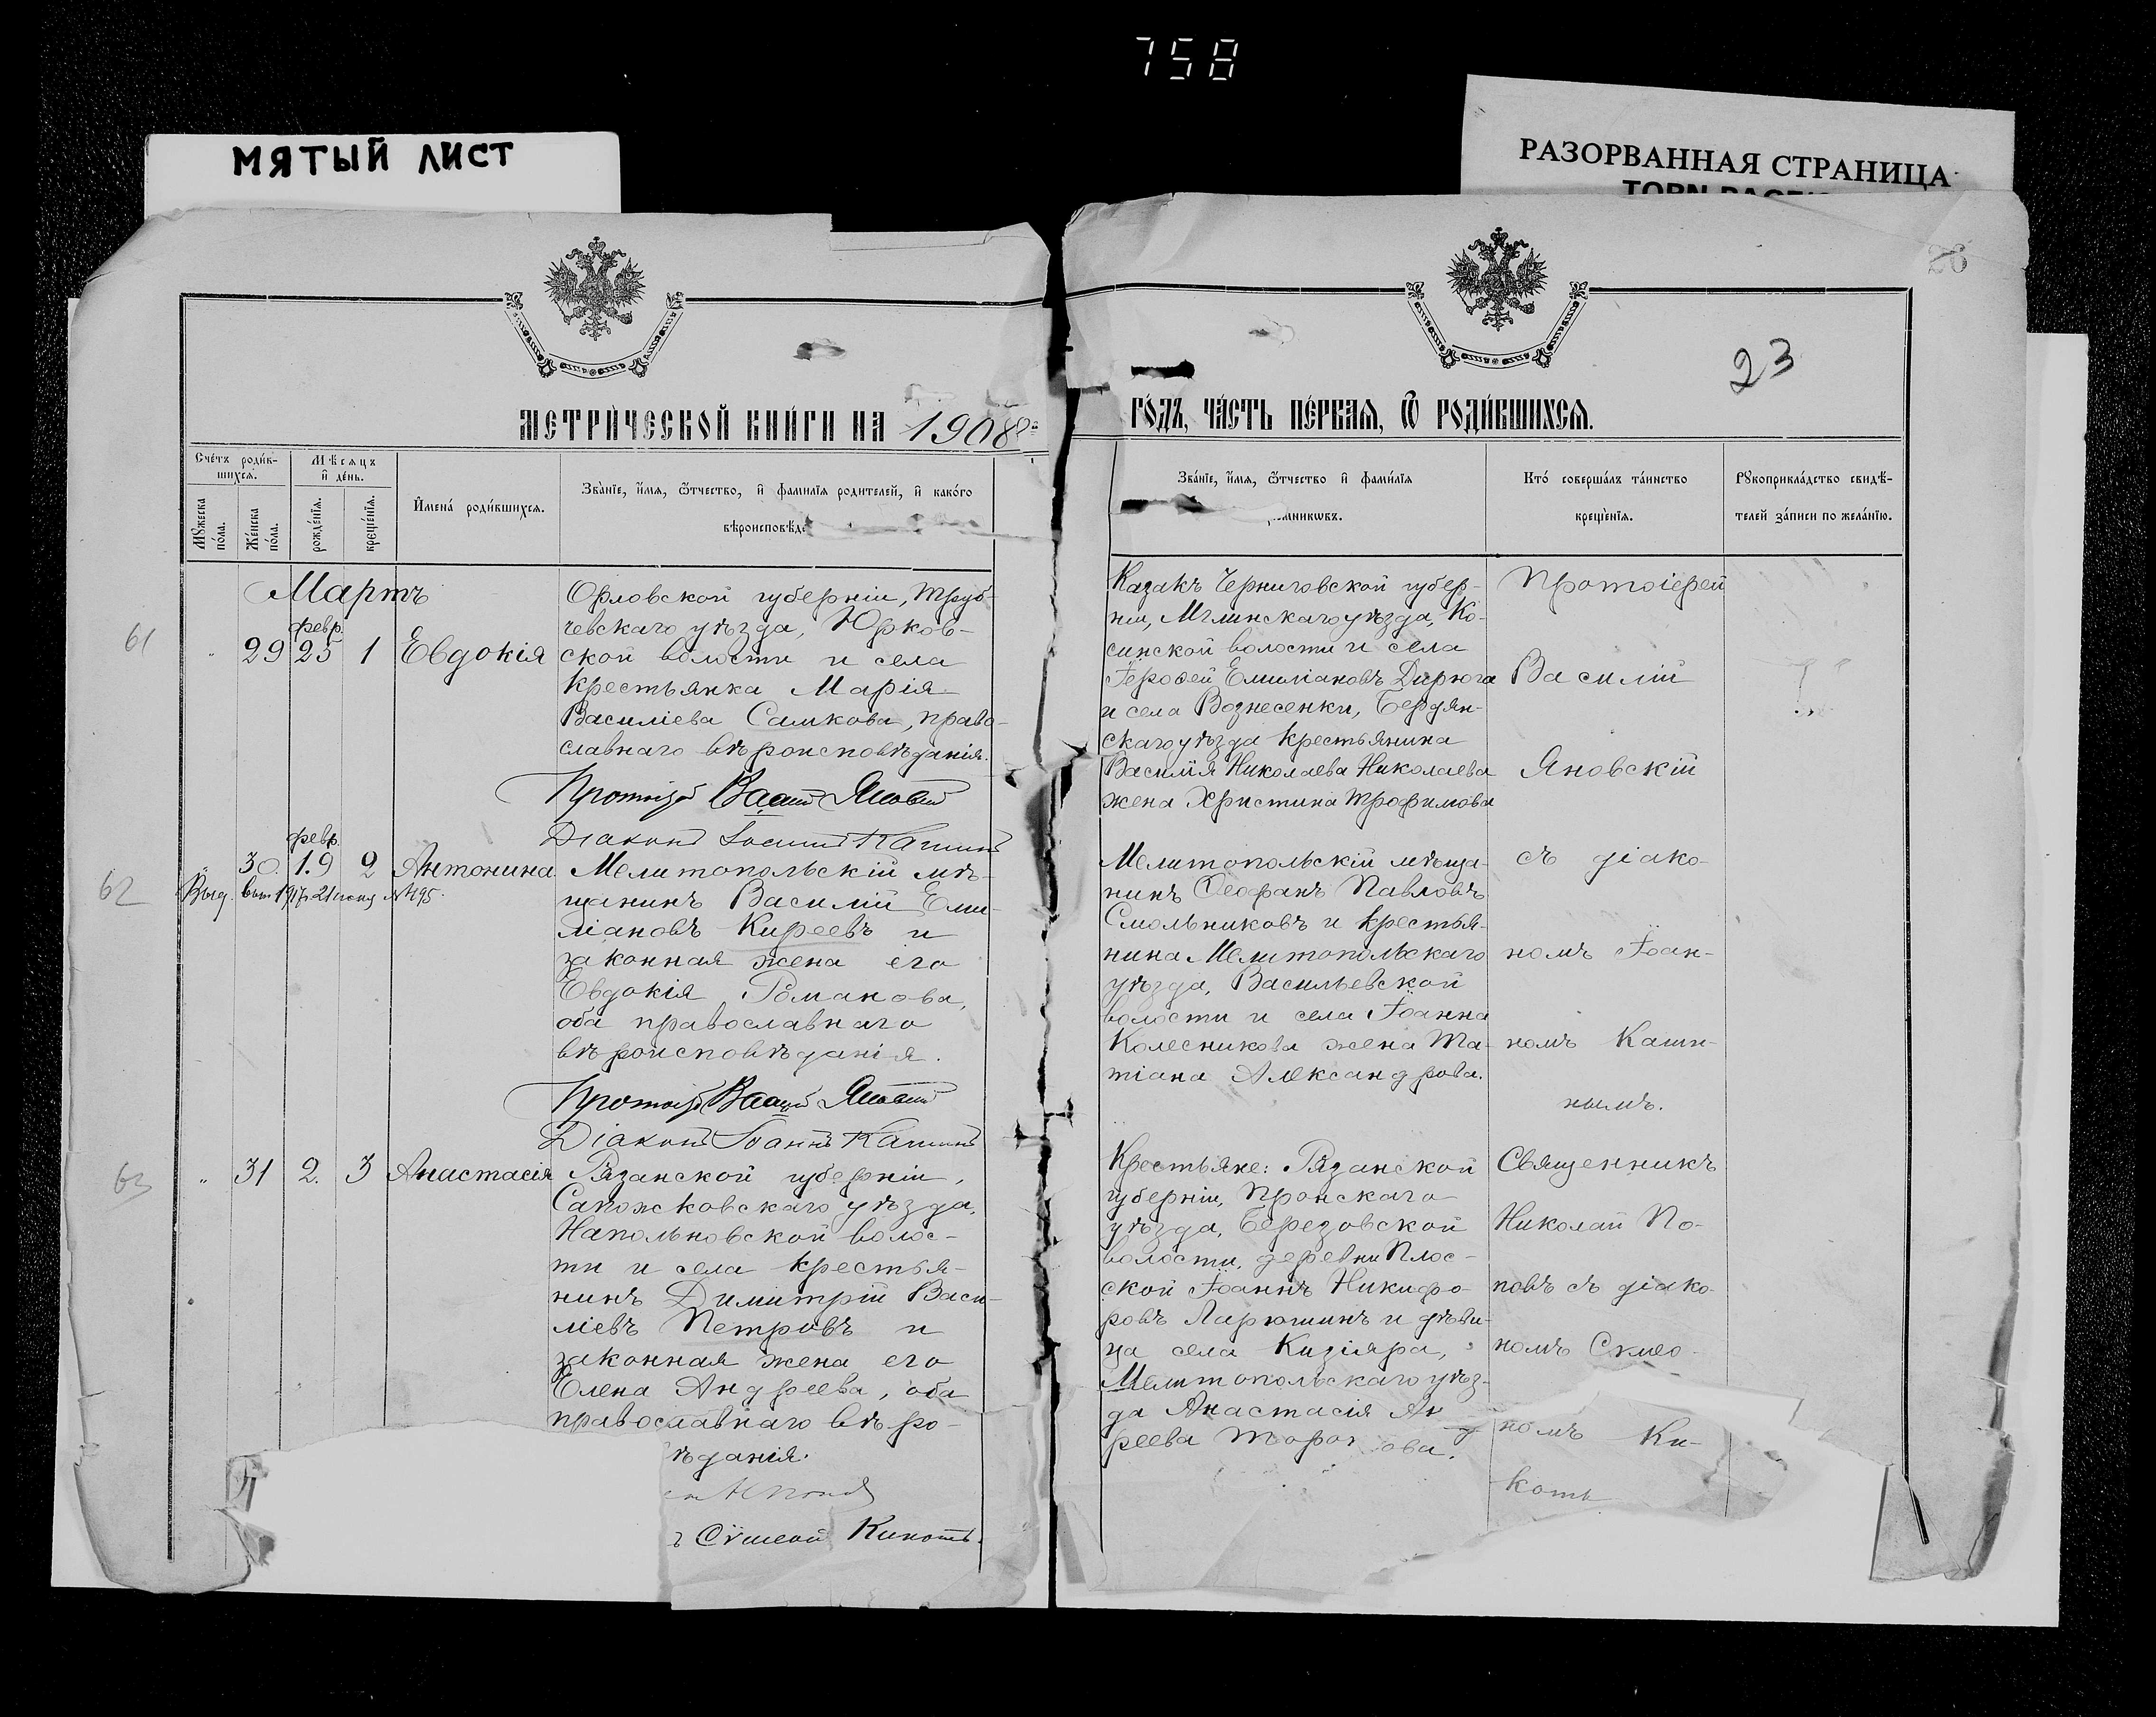 758
МЯТЫЙ ЛИСТ
РАЗОРВАННАЯ СТРАНИЦА
23
МЕТРИЧЕСКОЙ КНИГИ НА 1908
ГОДЪ, ЧАСТЬ ПЕРВАЯ, Ѡ РОДИВШИХСЯ.
Счетъ родив-
шихся.
Мѣсяцъ
и день.
Мужеска
пола.
Женска
пола.
рожденія.
крещенія.
Имена родившихся.
Званіе, имя, ѿчество, и фамилія родителей, и какого
вѣроисповѣд
Званіе, имя, ѿчество и фамилія
Кто совершалъ таинство
крещенія.
Рукоприкладство свидѣ-
телей записи по желанію.
Мартъ
61
29
февр.
25
1
Евдокія
Орловской губерніи, Труб-
чевскаго уѣзда, Юрков-
ской волости и села
крестьянка Марія
Василіева Самкова, право-
славнаго вѣроисповѣданія.
Діаконъ Іоаннъ Кашинъ
Казакъ Черниговской губер-
ніи, Мглинскаго уѣзда, Ко-
синской волости и села
Іерофей Емиліановъ Дирюга
и села Вознесенки, Бердян-
скаго уѣзда крестьянина
Василія Николаева Николаева
жена Христина Трофимова
Протоіерей
Василій
Яновскій
62
30
февр.
19
2
Антонина
Мелитопольскій мѣ-
щанинъ Василій Еми-
ліановъ Киреевъ и
законная жена его
Евдокія Романова,
оба православнаго
вѣроисповѣданія.
Діаконъ Іоаннъ Кашинъ
Мелитопольскій мѣща-
нинъ Ѳеофанъ Павловъ
Смольниковъ и крестья-
нина Мелитопольскаго
уѣзда, Васильевской
волости и села Іоанна
Колесникова жена Та-
тіана Александрова.
съ діако-
номъ Іоан-
номъ Каши-
нымъ.
63
„
31
2.
3
Анастасія
Рязанской губерніи,
Сапожковскаго уѣзда,
Напольновской волос-
ти и села крестья-
нинъ Димитрій Васи-
ліевъ Петровъ и
законная жена его
Елена Андреева, оба
православнаго вѣро-
ѣданія.
Кикоть.
Крестьяне: Рязанской
губерніи, Пронскаго
уѣзда, Березовской
волости, деревни Плос-
ской Іоаннъ Никифо-
ровъ Ларюшинъ и дѣви-
ца села Кизіяра,
Мелитопольскаго уѣз-
да Анастасія Ан
реева
Священникъ
Николай По-
повъ съ діако-
номъ
номъ Ки-
коть